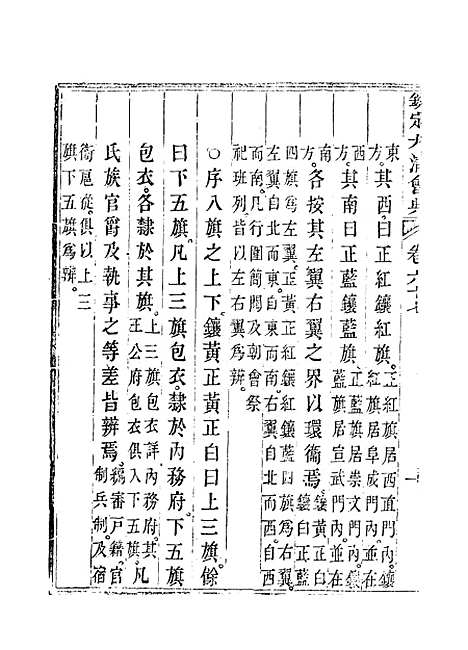 欽定大清會典 卷六十七 一
東方。其西曰正紅鑲紅旗。正紅旗居西直門內。鑲紅旗居阜成門內。並在
西方。其南曰正藍鑲藍旗。正藍旗居崇文門內。鑲藍旗居宣武門內。並在
南方。各按其左翼右翼之界以環衛焉。鑲黃正白鑲白正藍
四旗為左翼。正黃正紅鑲紅鑲藍四旗為右翼。
左翼自北而東。自東而南。右翼自北而西。自西
而南。凡行圍簡閱及朝會祭
祀班列。皆以是為辨。
○序八旗之上下鑲黃正黃正白曰上三旗餘
曰下五旗。凡上三旗包衣。隸於內務府。下五旗
包衣。各隸於其旗。上三旗包衣詳內務府。其王公府包衣俱入下五旗。凡
氏族官爵及執事之等差皆辨焉。編審戶籍官制兵制。及宿
衛扈從。俱以上三
旗下五旗為辨。